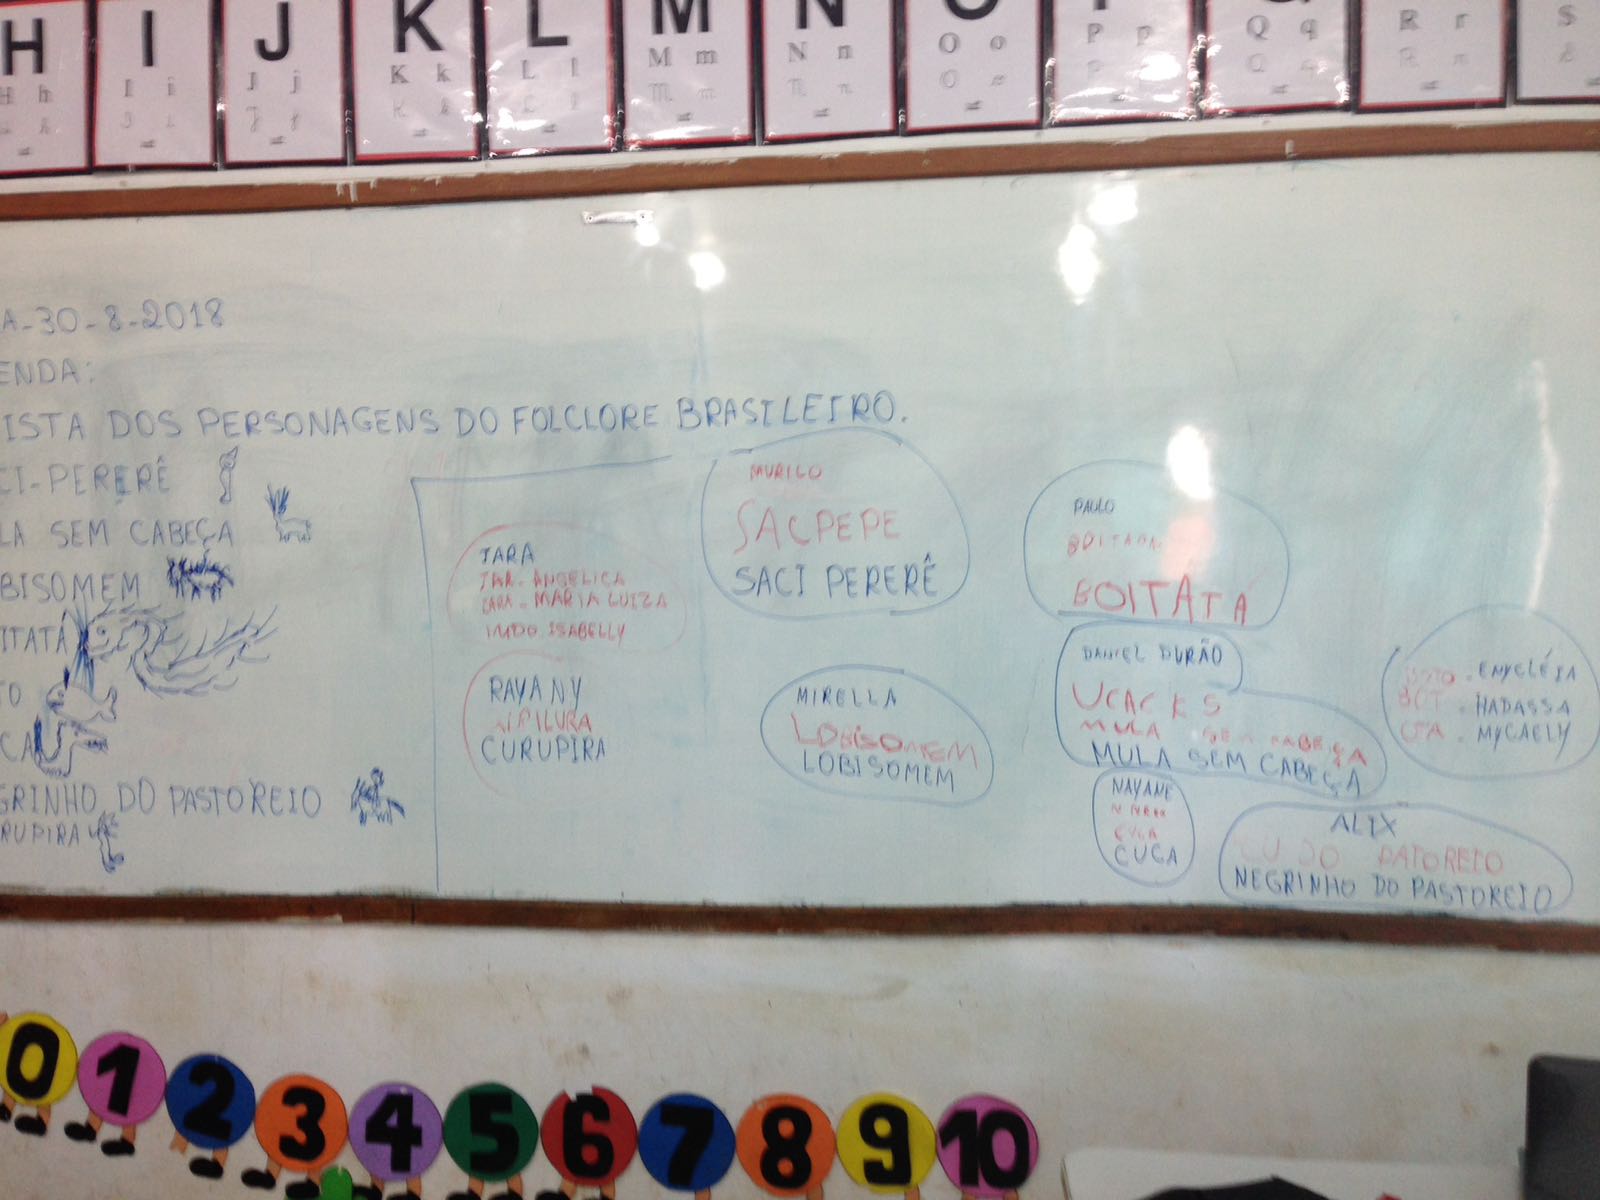 H I J K L M N O P Q R S
H h I i J j K k L l M m N n O o P p Q q R r S
A-30-8-2018
ENDA:
ISTA DOS PERSONAGENS DO FOLCLORE BRASILEIRO.
CI-PERERÊ
LA SEM CABEÇA
BISOMEM
ITATÁ
TO
CA
GRINHO DO PASTOREIO
RUPIRA
IARA
IAR-ANGELICA
IARA-MARIA LUIZA
ISABELLY
RAYANY
CURUPIRA
MURILO
SACPEPE
SACI PERERÊ
MIRELLA
LOBISOMEM
LOBISOMEM
PAULO
BOITATÁ
DANIEL DURÃO
UCACKS
MULA SEM CABEÇA
MULA SEM CABEÇA
NAYANE
CUCA
ALIX
CU DO PATOREIO
NEGRINHO DO PASTOREIO
HADASSA
MYCAELY
0 1 2 3 4 5 6 7 8 9 10